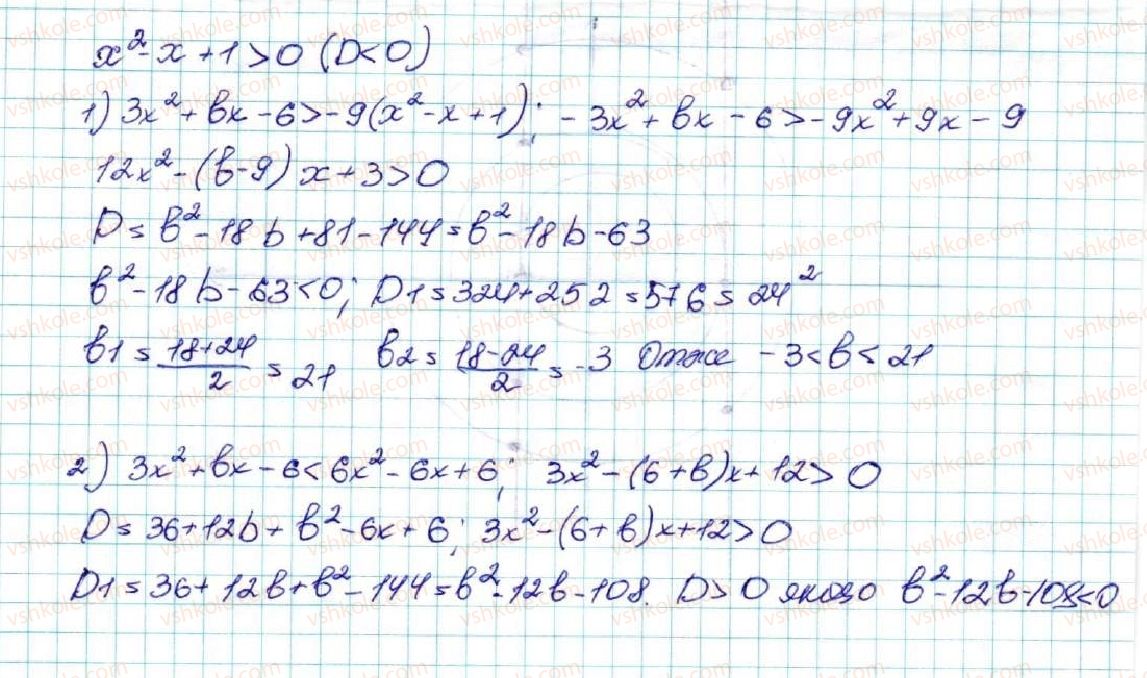 x² - x + 1 > 0 (D < 0)
1) 3x² + bx - 6 > -9(x² - x + 1); - 3x² + bx - 6 > -9x² + 9x - 9
12x² - (b-9)x + 3 > 0
D = b² - 18b + 81 - 144 = b² - 18b - 63
b² - 18b - 63 < 0; D1 = 324 + 252 = 576 = 24²
b1 = (18+24)/2 = 21 b2 = (18-24)/2 = -3 Отже -3 < b < 21
2) 3x² + bx - 6 < 6x² - 6x + 6; 3x² - (6+b)x + 12 > 0
D = 36 + 12b + b² - 6x + 6; 3x² - (6+b)x + 12 > 0
D1 = 36 + 12b + b² - 144 = b² - 12b - 108. D > 0 якщо b² - 12b - 108 < 0
vshkole.com